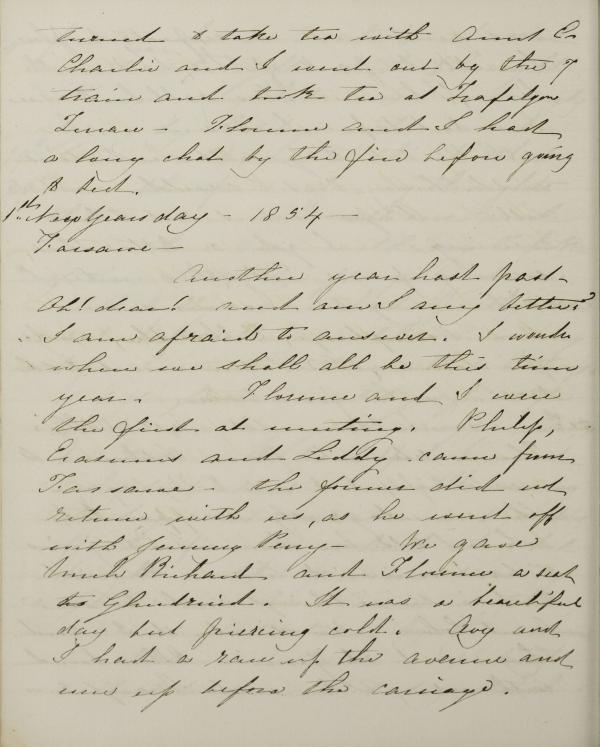 turned & take tea with Aunt C.
Charlie and I went out by the 7
train and took tea at Trafalgar
Terrace - Florence and I had
a long chat by the fire before going
to bed.
1st New Years day - 1854 -
Fassaroe -
Another year hast past -
Oh! dear! and am I any better?
I am afraid to answer. I wonder
where we shall all be this time
year. Florence and I were
the first at meeting. Philip,
Erasmus and Liddy came from
Fassaroe - the former did not
return with us, as he went off
with Jemmy Perry - We gave
Uncle Richard and Florence a seat
to Glendruid. It was a beautiful
day but piercing cold. Avy and
I had a race up the avenue and
were up before the carriage.